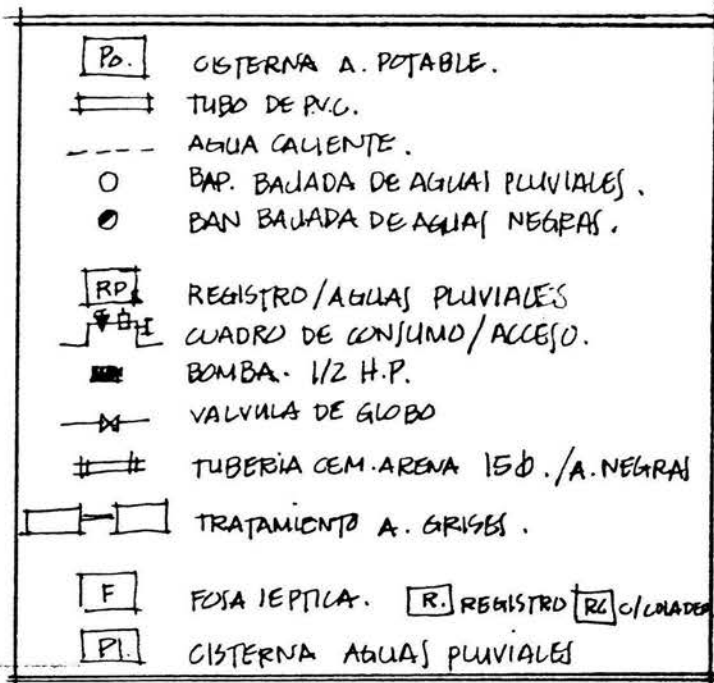 Po. CISTERNA A. POTABLE.
TUBO DE P.V.C.
AGUA CALIENTE.
BAP. BAJADA DE AGUAS PLUVIALES.
BAN BAJADA DE AGUAS NEGRAS.
RP REGISTRO/AGUAS PLUVIALES
CUADRO DE CONSUMO/ACCESO.
BOMBA. 1/2 H.P.
VALVULA DE GLOBO
TUBERIA CEM.ARENA 15Ø./A.NEGRAS
TRATAMIENTO A. GRISES.
F FOSA SEPTICA. R. REGISTRO RC C/COLADER
Pl. CISTERNA AGUAS PLUVIALES